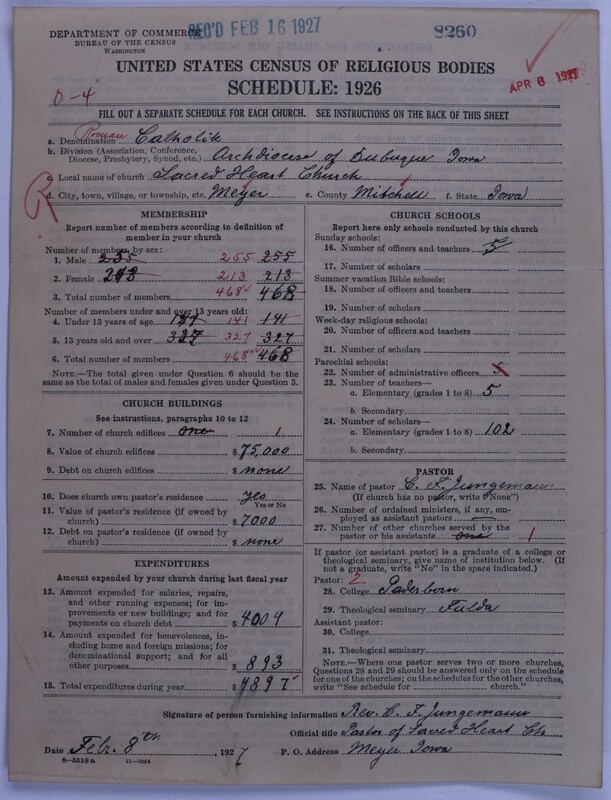 DEPARTMENT OF COMMERCE
BUREAU OF THE CENSUS
WASHINGTON
REC'D FEB 16 1927
8260
APR 6 1927
UNITED STATES CENSUS OF RELIGIOUS BODIES
SCHEDULE: 1926
0-4
FILL OUT A SEPARATE SCHEDULE FOR EACH CHURCH. SEE INSTRUCTIONS ON THE BACK OF THIS SHEET
a. Denomination Roman Catholic
b. Division (Association, Conference, Diocese, Presbytery, Synod, etc.) Archdiocese of Dubuque Iowa
c. Local name of church Sacred Heart Church
d. City, town, village, or township, etc. Meyer e. County Mitchell f. State Iowa
R
MEMBERSHIP
Report number of members according to definition of
member in your church
Number of members by sex:
1. Male 235 255 255
2. Female 213 213
3. Total number of members 468 468
Number of members under and over 13 years old:
4. Under 13 years of age 141 141
5. 13 years old and over 327 327 327
6. Total number of members 468 468
NOTE.—The total given under Question 6 should be the
same as the total of males and females given under Question 3.
CHURCH BUILDINGS
See instructions, paragraphs 10 to 12
7. Number of church edifices one 1
8. Value of church edifices $75,000
9. Debt on church edifices $ none
10. Does church own pastor's residence yes
Yes or No
11. Value of pastor's residence (if owned by
church) $ 7000
12. Debt on pastor's residence (if owned by
church) $ none
EXPENDITURES
Amount expended by your church during last fiscal year
13. Amount expended for salaries, repairs,
and other running expenses; for improvements or new buildings; and for
payments on church debt $ 4004
14. Amount expended for benevolences,
including home and foreign missions; for
denominational support; and for all
other purposes $ 893
15. Total expenditures during year $ 4897
CHURCH SCHOOLS
Report here only schools conducted by this church
Sunday schools:
16. Number of officers and teachers 5
17. Number of scholars
Summer vacation Bible schools:
18. Number of officers and teachers
19. Number of scholars
Week-day religious schools:
20. Number of officers and teachers
21. Number of scholars
Parochial schools:
22. Number of administrative officers
23. Number of teachers—
a. Elementary (grades 1 to 8) 5
b. Secondary
24. Number of scholars—
a. Elementary (grades 1 to 8) 102
b. Secondary
PASTOR
25. Name of pastor C. F. Jungemann
(If church has no pastor, write "None")
26. Number of ordained ministers, if any, employed as assistant pastors —
27. Number of other churches served by the
pastor or his assistants one 1
If pastor (or assistant pastor) is a graduate of a college or
theological seminary, give name of institution below. (If
not a graduate, write "No" in the space indicated.)
Pastor: 2
28. College Paderborn
29. Theological seminary Fulda
Assistant pastor:
30. College
31. Theological seminary
NOTE.—Where one pastor serves two or more churches,
Questions 28 and 29 should be answered only on the schedule
for one of the churches; on the schedules for the other churches,
write "See schedule for church."
Signature of person furnishing information Rev. C. F. Jungemann
Official title Pastor of Sacred Heart Ch
Date Febr. 8th, 1927 P. O. Address Meyer Iowa
8-5518a 11-9054